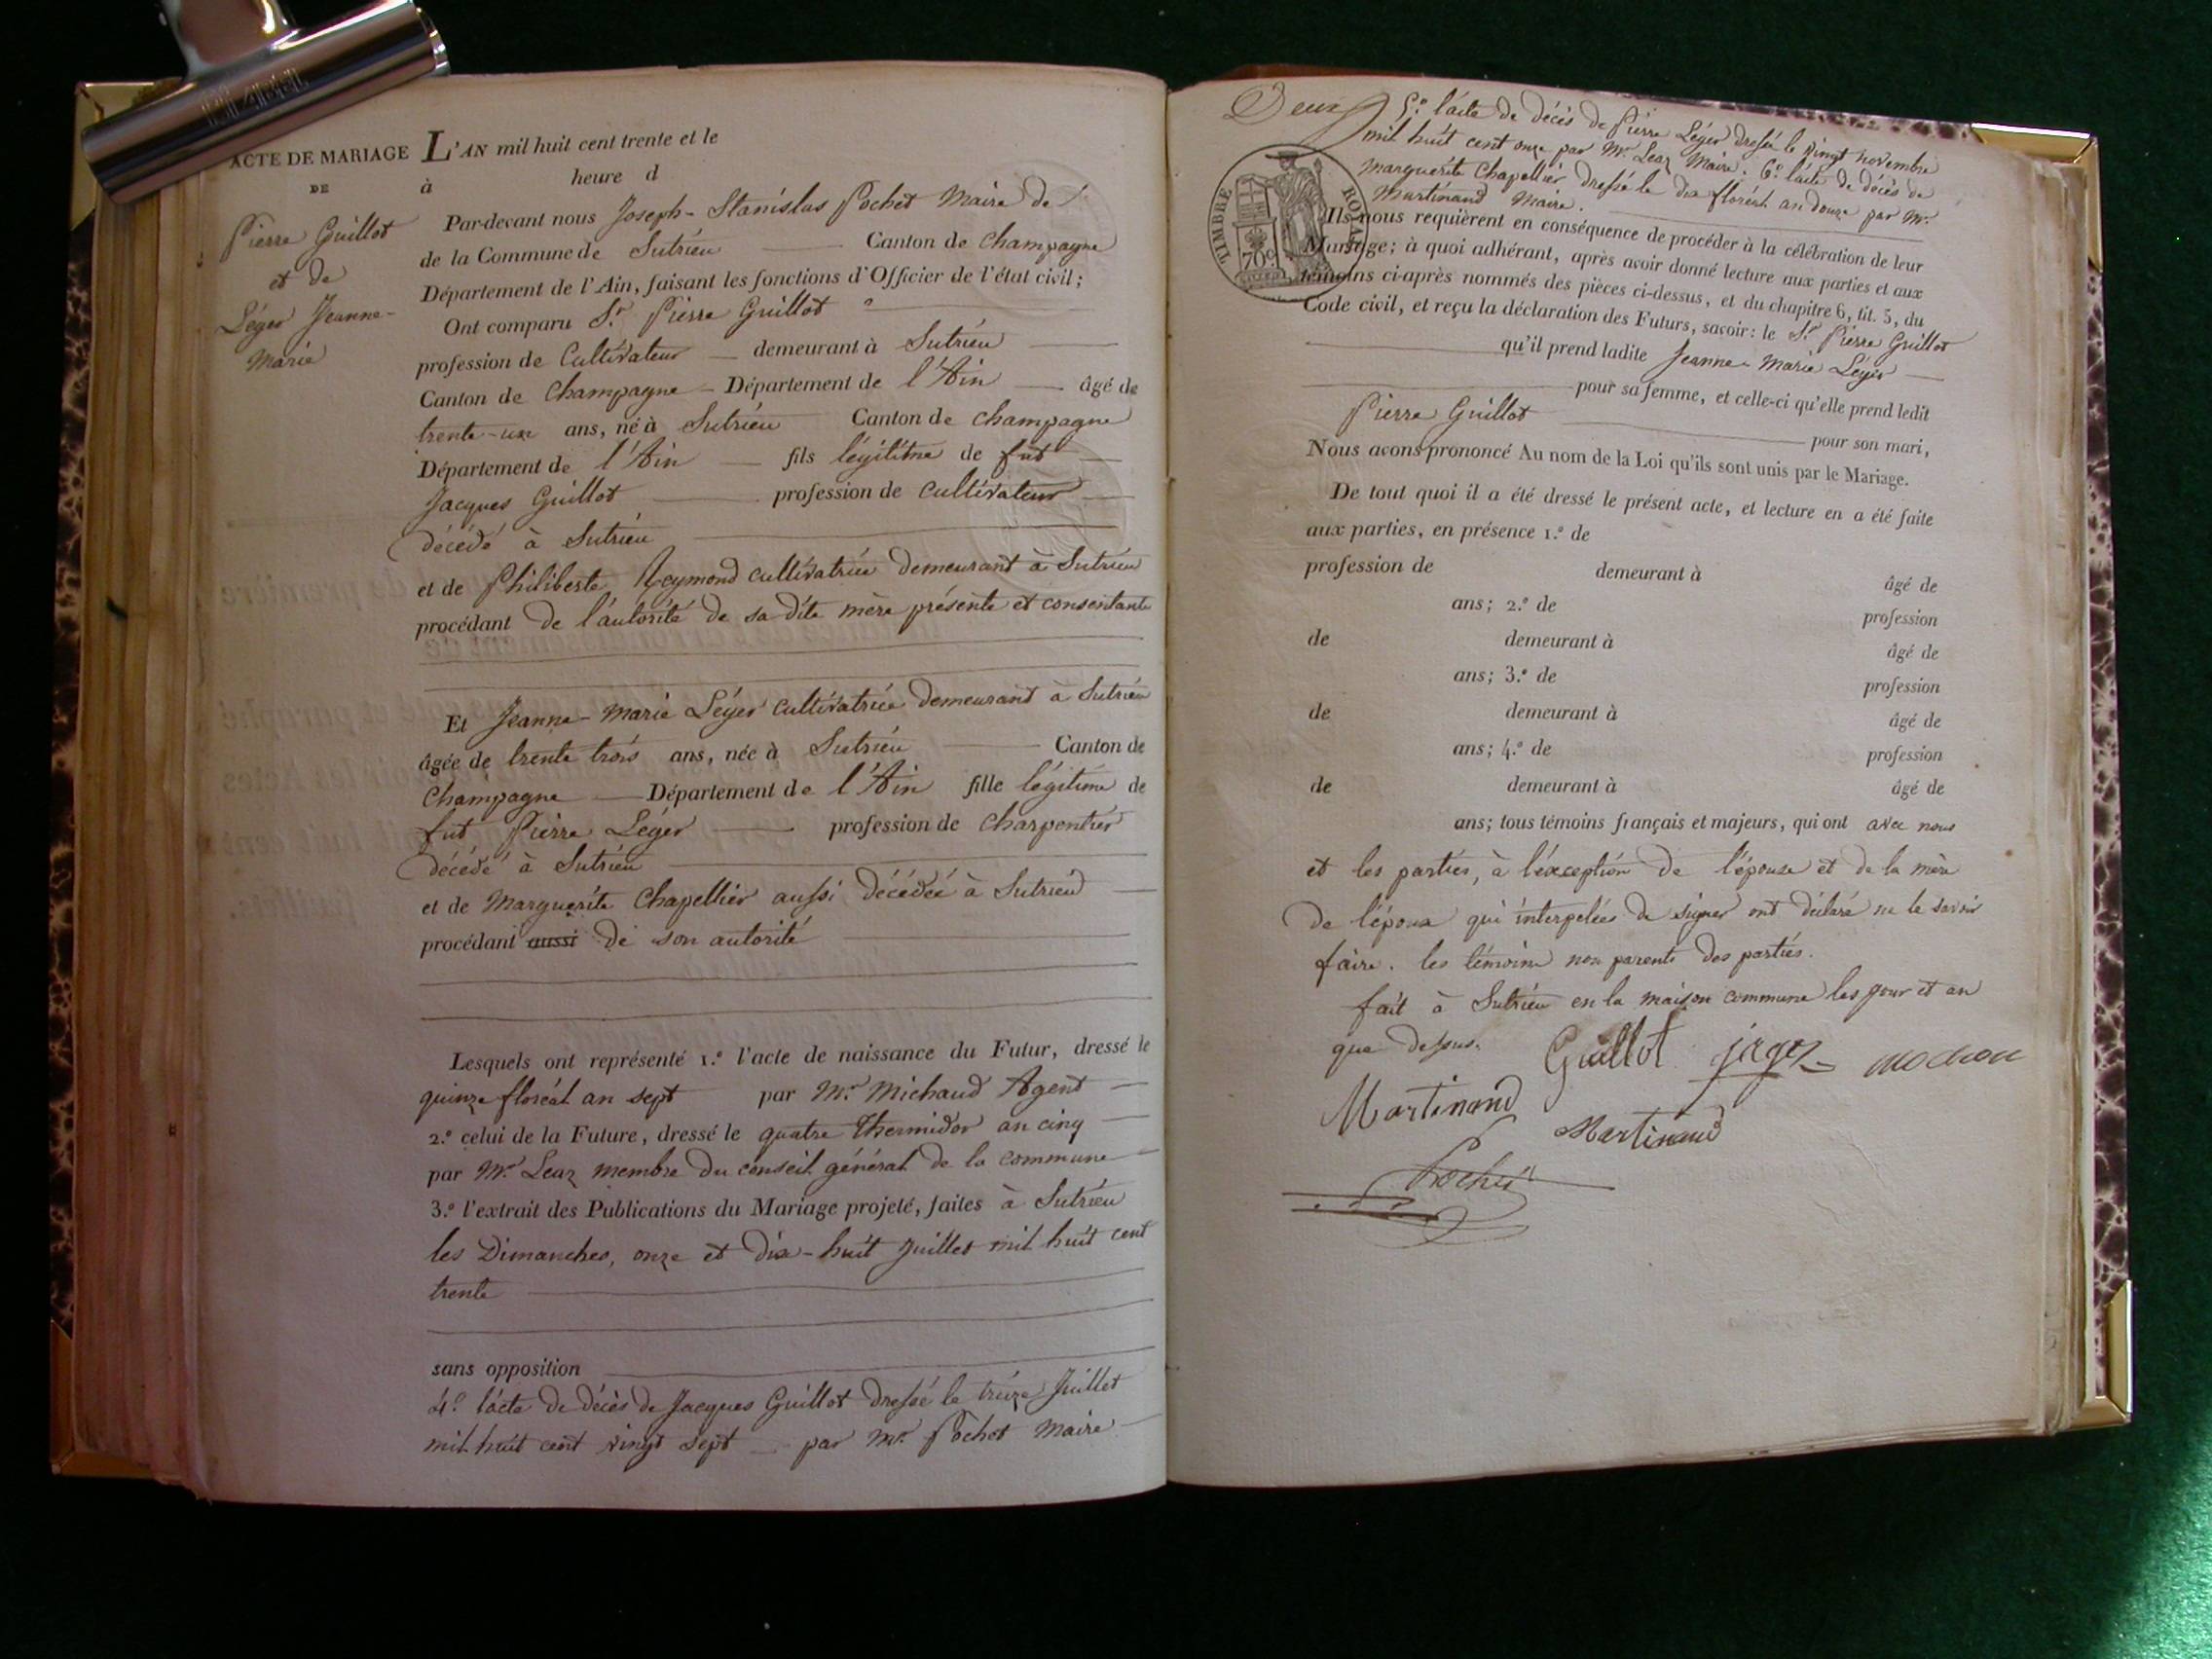 ACTE DE MARIAGE
DE
Pierre Guillot
et de
Léger Jeanne-
Marie
L'AN mil huit cent trente et le
à heure d
Par-devant nous Joseph-Stanislas Pochet Maire de
de la Commune de Sutrieu Canton de Champagne
Département de l'Ain, faisant les fonctions d'Officier de l'état civil;
Ont comparu Sr. Pierre Guillot
profession de Cultivateur demeurant à Sutrieu
Canton de Champagne Département de l'Ain âgé de
trente-un ans, né à Sutrieu Canton de Champagne
Département de l'Ain fils légitime de fut
Jacques Guillot profession de cultivateur
décédé à Sutrieu
et de Philiberte Reymond cultivatrice demeurant à Sutrieu
procédant de l'autorité de sa dite mère présente et consentante
Et Jeanne-Marie Léger cultivatrice demeurant à Sutrieu
âgée de trente trois ans, née à Sutrieu Canton de
Champagne Département de l'Ain fille légitime de
fut Pierre Léger profession de Charpentier
décédé à Sutrieu
et de Marguerite Chapellier aussi décédée à Sutrieu
procédant aussi de son autorité
Lesquels ont représenté 1.° l'acte de naissance du Futur, dressé le
quinze floréal an sept par Mr. Michaud Agent
2.° celui de la Future, dressé le quatre thermidor an cinq
par Mr. Leaz membre du conseil général de la commune
3.° l'extrait des Publications du Mariage projeté, faites à Sutrieu
les Dimanches, onze et dix-huit Juillet mil huit cent
trente
sans opposition
4.° l'acte de décès de Jacques Guillot dressé le treize Juillet
mil huit cent vingt sept par Mr. Pochet Maire
Deux
5.° l'acte de décès de Pierre Léger dressé le vingt novembre
mil huit cent onze par Mr. Leaz Maire. 6.° l'acte de décès de
Marguerite Chapellier dressé le dix floréal an douze par Mr.
Martinand Maire.
TIMBRE ROYAL
70c
Ils nous requièrent en conséquence de procéder à la célébration de leur
Mariage; à quoi adhérant, après avoir donné lecture aux parties et aux
témoins ci-après nommés des pièces ci-dessus, et du chapitre 6, tit. 5, du
Code civil, et reçu la déclaration des Futurs, savoir: le Sr. Pierre Guillot
qu'il prend ladite Jeanne-Marie Léger
pour sa femme, et celle-ci qu'elle prend ledit
Pierre Guillot pour son mari,
Nous avons prononcé Au nom de la Loi qu'ils sont unis par le Mariage.
De tout quoi il a été dressé le présent acte, et lecture en a été faite
aux parties, en présence 1.° de
profession de demeurant à âgé de
ans; 2.° de profession
de demeurant à âgé de
ans; 3.° de profession
de demeurant à âgé de
ans; 4.° de profession
de demeurant à âgé de
ans; tous témoins français et majeurs, qui ont avec nous
et les parties, à l'exception de l'épouse et de la mère
de l'époux qui interpelées de signer ont déclaré ne le savoir
faire. les témoins non parents des parties.
fait à Sutrieu en la maison commune les jour et an
que dessus. Guillot
Martinand Martinand
Pochet